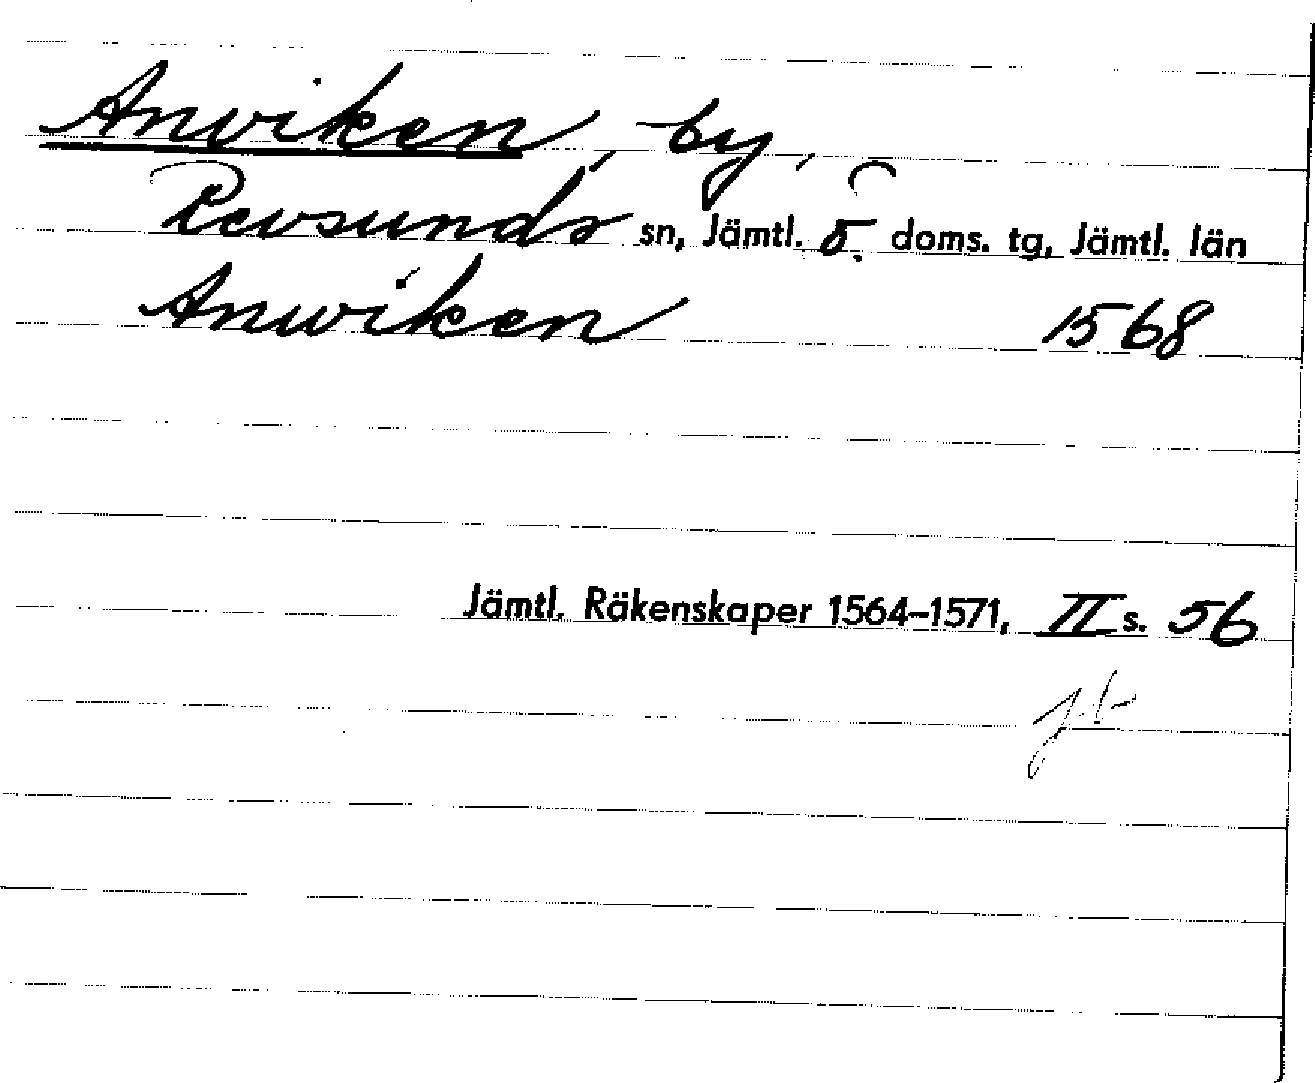 Anviken, by,
Revsunds sn, Jämtl. ö. doms. tg, Jämtl. län
Anwiken 1568
Jämtl. Räkenskaper 1564–1571, II s. 56